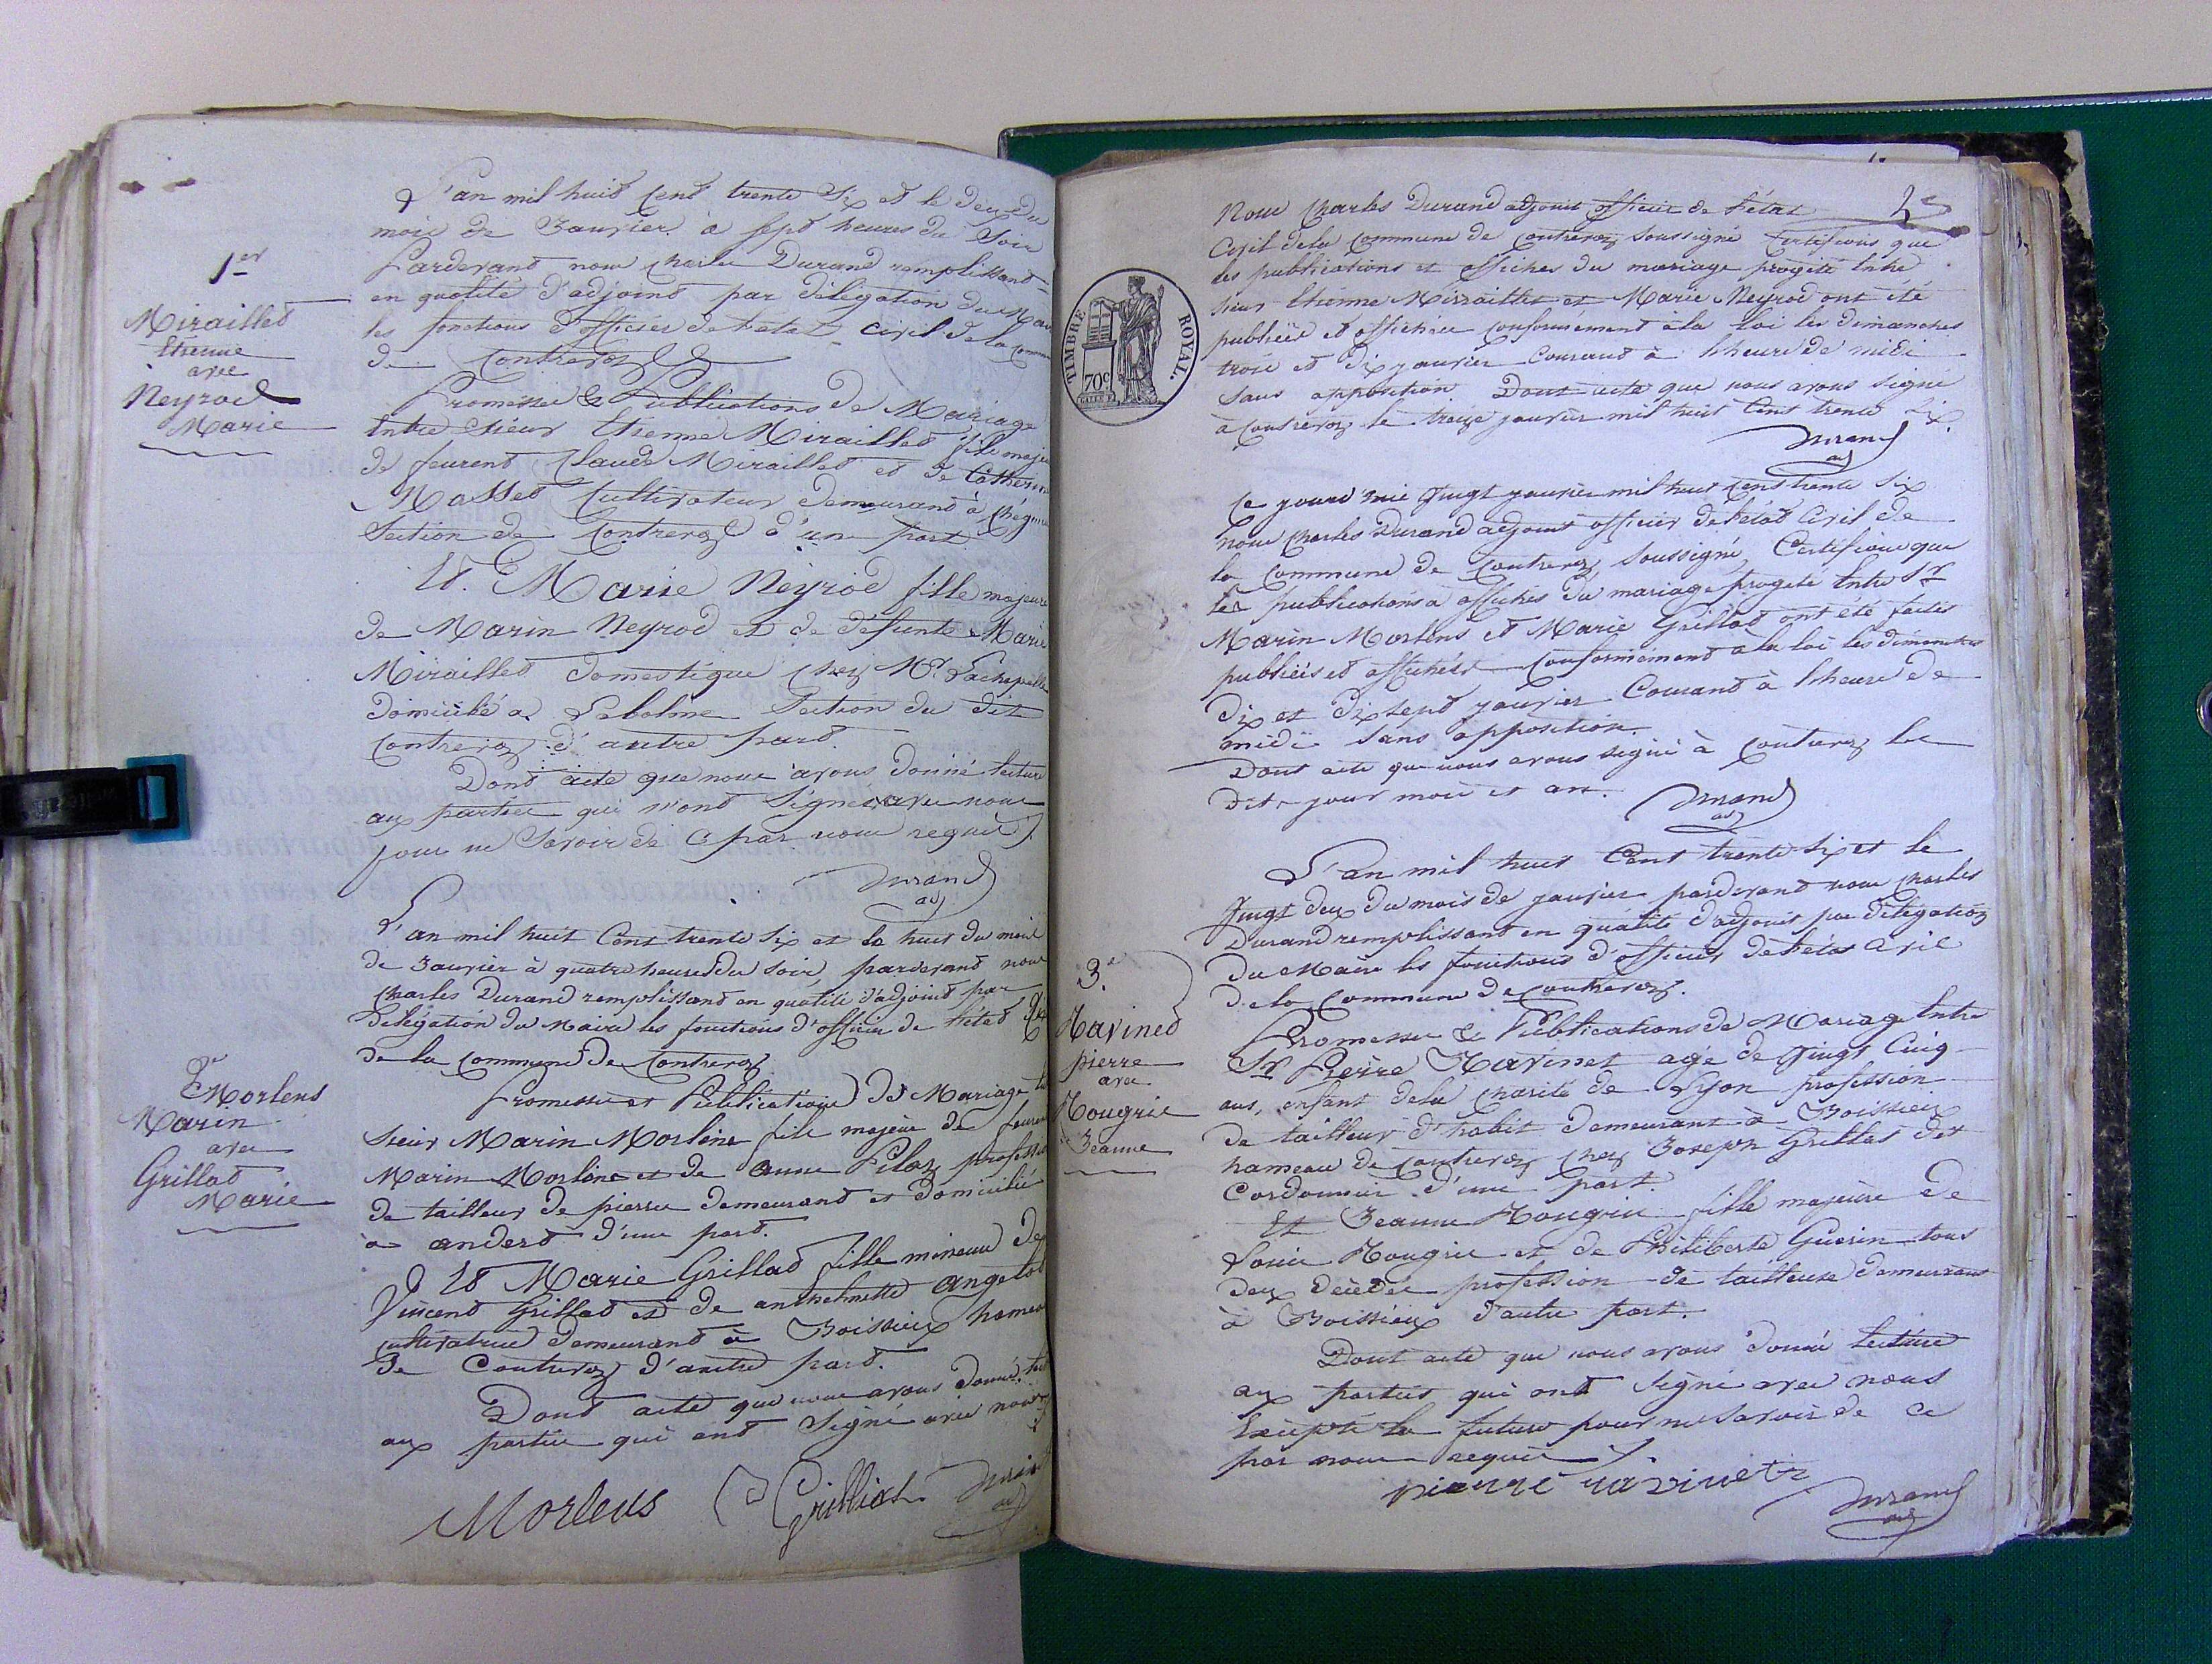 1er
Miraillet
Etienne
avec
Neyrod
Marie
L'an mil huit cent trente six et le deux du
mois de Janvier à sept heures du Soir
Pardevant nous Charles Durand remplissant
en qualité d'adjoint par délégation du Maire
les fonctions d'officier de l'état civil de la commune
de Contrevoz
Promesse & Publications de Mariage
Entre Sieur Etienne Miraillet fils majeur
de feurent Claude Miraillet et de Catherine
Masset Cultivateur demeurant à
Section de Contrevoz d'une part
Et Marie Neyrod fille majeure
de Marin Neyrod et de défunte Marie
Miraillet domestique chez Mr. Lachapelle
domicilié à Labalme Section du dit
Contrevoz d'autre part.
Dont acte que nous avons donné lecture
aux parties qui n'ont Signé avec nous
pour ne Savoir de ce par nous requis
Durand
adj
2e
Morlens
Marin
avec
Grillad
Marie
L'an mil huit Cent trente Six et le huit du mois
de Janvier à quatre heures du soir, pardevant nous
Charles Durand remplissant en qualité d'adjoint par
délégation du Maire les fonctions d'officier de l'état
de la Commune de Contrevoz
Promesse et Publication de Mariage
Sieur Marin Morlens fils majeur de feurent
Marin Morlens et de Anne Pilaz profession
de tailleur de pierre demeurant et domicilié
à andert d'une part.
Et Marie Grillad fille mineure de
Vincent Grillad et de anthelmette angelot
cultivatrice demeurant à Boissieux hameau
de Contrevoz d'autre part.
Dont acte que nous avons donné
aux parties qui ont Signé avec nous
Morlens Grilliat Durand
adj
TIMBRE ROYAL.
70c
2
Nous Charles Durand adjoint officier de l'état
Civil de la Commune de Contrevoz soussigné Certifions que
les publications et affiches du mariage progété Entre
sieur Etienne Mirraillet et Marie Neyrod ont été
publiées et affichées conformément à la loi les dimanches
trois et dix janvier Courant à l'heure de midi
Sans opposition. Dont acte que nous avons signé
à Contrevoz le treize janvier mil huit Cent trente Six.
Durand
adj
Ce jourd'hui Vingt janvier mil huit Cent trente Six
nous Charles Durand adjoint officier de l'état Civil de
la Commune de Contrevoz Soussigné, Certifions que
les publications & affiches du mariage progeté Entre Sr
Marin Morlens et Marie Grillad ont été faites
publiées et affichées conformément à la loi les dimanches
Dix et Dix Sept janvier Courant à l'heure de
midi Sans opposition.
Dont acte que nous avons signé à Contrevoz les
dits jour mois et an.
Durand
adj
3.e
Ravined
pierre
avec
Rougrie
Jeanne
L'an mil huit Cent trente Six et le
Vingt deux du mois de janvier pardevant nous Charles
Durand remplissant en qualité d'adjoint par délégation
du Maire les fonctions d'officier de l'état Civil
de la Commune de Contrevoz.
Promesse & Publications de Mariage Entre
Sr Pierre Ravinet agé de Vingt Cinq
ans, enfant de la Charité de Lyon profession
de tailleur d'habit demeurant à Boissieux
hameau de Contrevoz chez Joseph Grillat dit
Cordonnier d'une part.
Et Jeanne Rougrie fille majeure de
Louis Rougrie et de Philiberte Guérin tous
deux décédés profession de tailleuse demeurant
à Boissieux d'autre part.
Dont acte que nous avons donné lecture
aux parties qui ont Signé avec nous
Excepté la future pour ne Savoir de ce
par nous requis
pierre ravinet
Durand
adj